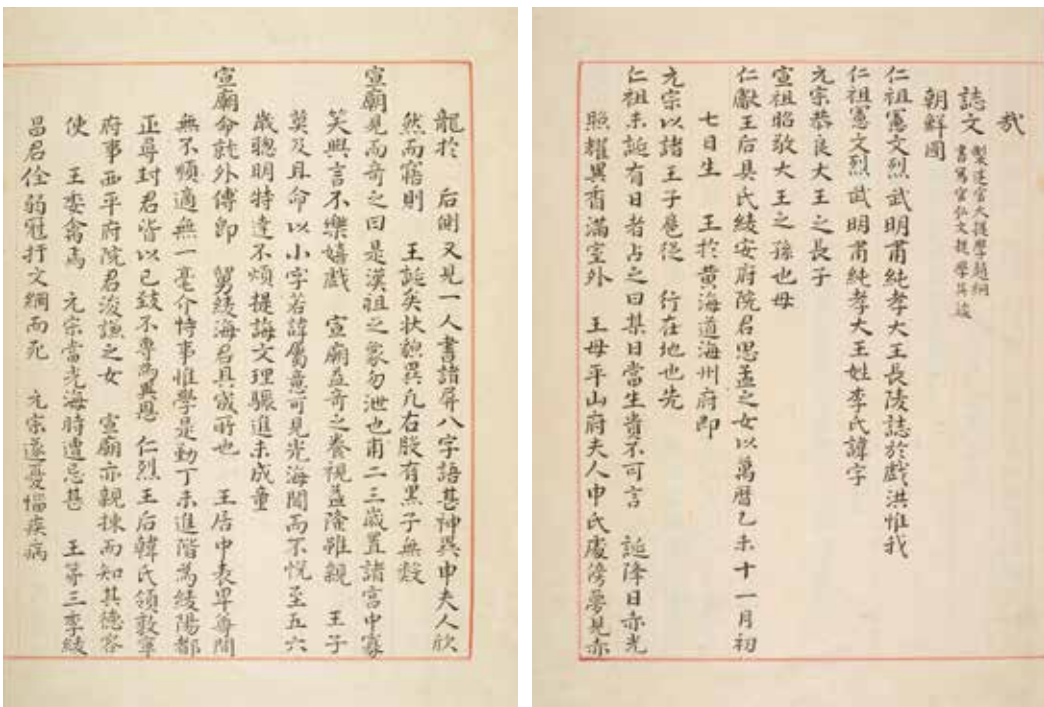 哉
誌文 製述官大提學趙絅
書寫官弘文提學吳竣
朝鮮國
仁祖憲文烈武明肅純孝大王長陵誌於戲洪惟我
仁祖憲文烈武明肅純孝大王姓李氏諱字
元宗恭良大王之長子
宣祖昭敬大王之孫也母
仁獻王后具氏綾安府院君思孟之女以萬曆乙未十一月初
七日生 王於黃海道海州府即
元宗以諸王子扈從 行在地也先
仁祖未誕有日者占之曰某日當生貴不可言 誕降日赤光
照耀異香滿室外 王母平山府夫人申氏處傍夢見赤
龍於 后側又見一人書諸屏八字語甚神異申夫人欣
然而寤則 王誕矣狀貌異凡右股有黑子無數
宣廟見而奇之曰是漢祖之象勿泄也甫二三歲置諸宮中寡
笑與言不樂嬉戲 宣廟益奇之養視益隆雖親 王子
莫及且命以小字若諱屬意可見光海聞而不悅至五六
歲聰明特達不煩提誨文理驟進未成童
宣廟命就外傅即 舅綾海君具宬所也 王居中表卑尊間
無不順適無一毫介恃事惟學是勤丁未進階為綾陽都
正尋封君皆以已致不專為異恩 仁烈王后韓氏領敦寧
府事西平府院君浚謙之女 宣廟亦親揀而知其德容
使 王委禽焉 元宗當光海時遭忌甚 王第三季綾
昌君佺弱冠扞文網而死 元宗遂憂惱疾病